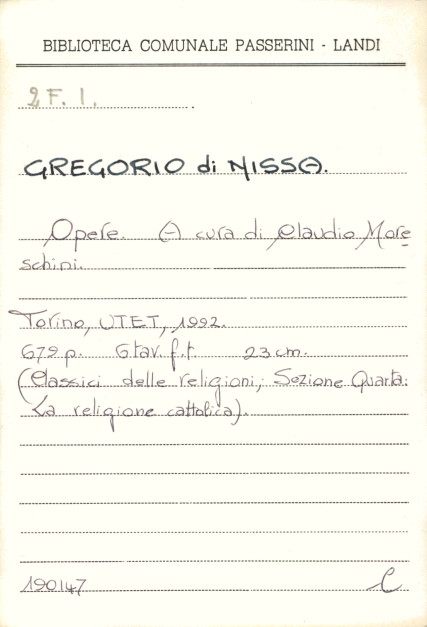 BIBLIOTECA COMUNALE PASSERINI - LANDI
2 F. 1.
GREGORIO di NISSA.
Opere. A cura di Claudio More=
schini.
Torino, UTET, 1992.
679 p. 6 tav. f.t. 23 cm.
(Classici delle religioni; Sezione Quarta:
La religione cattolica).
190147 C